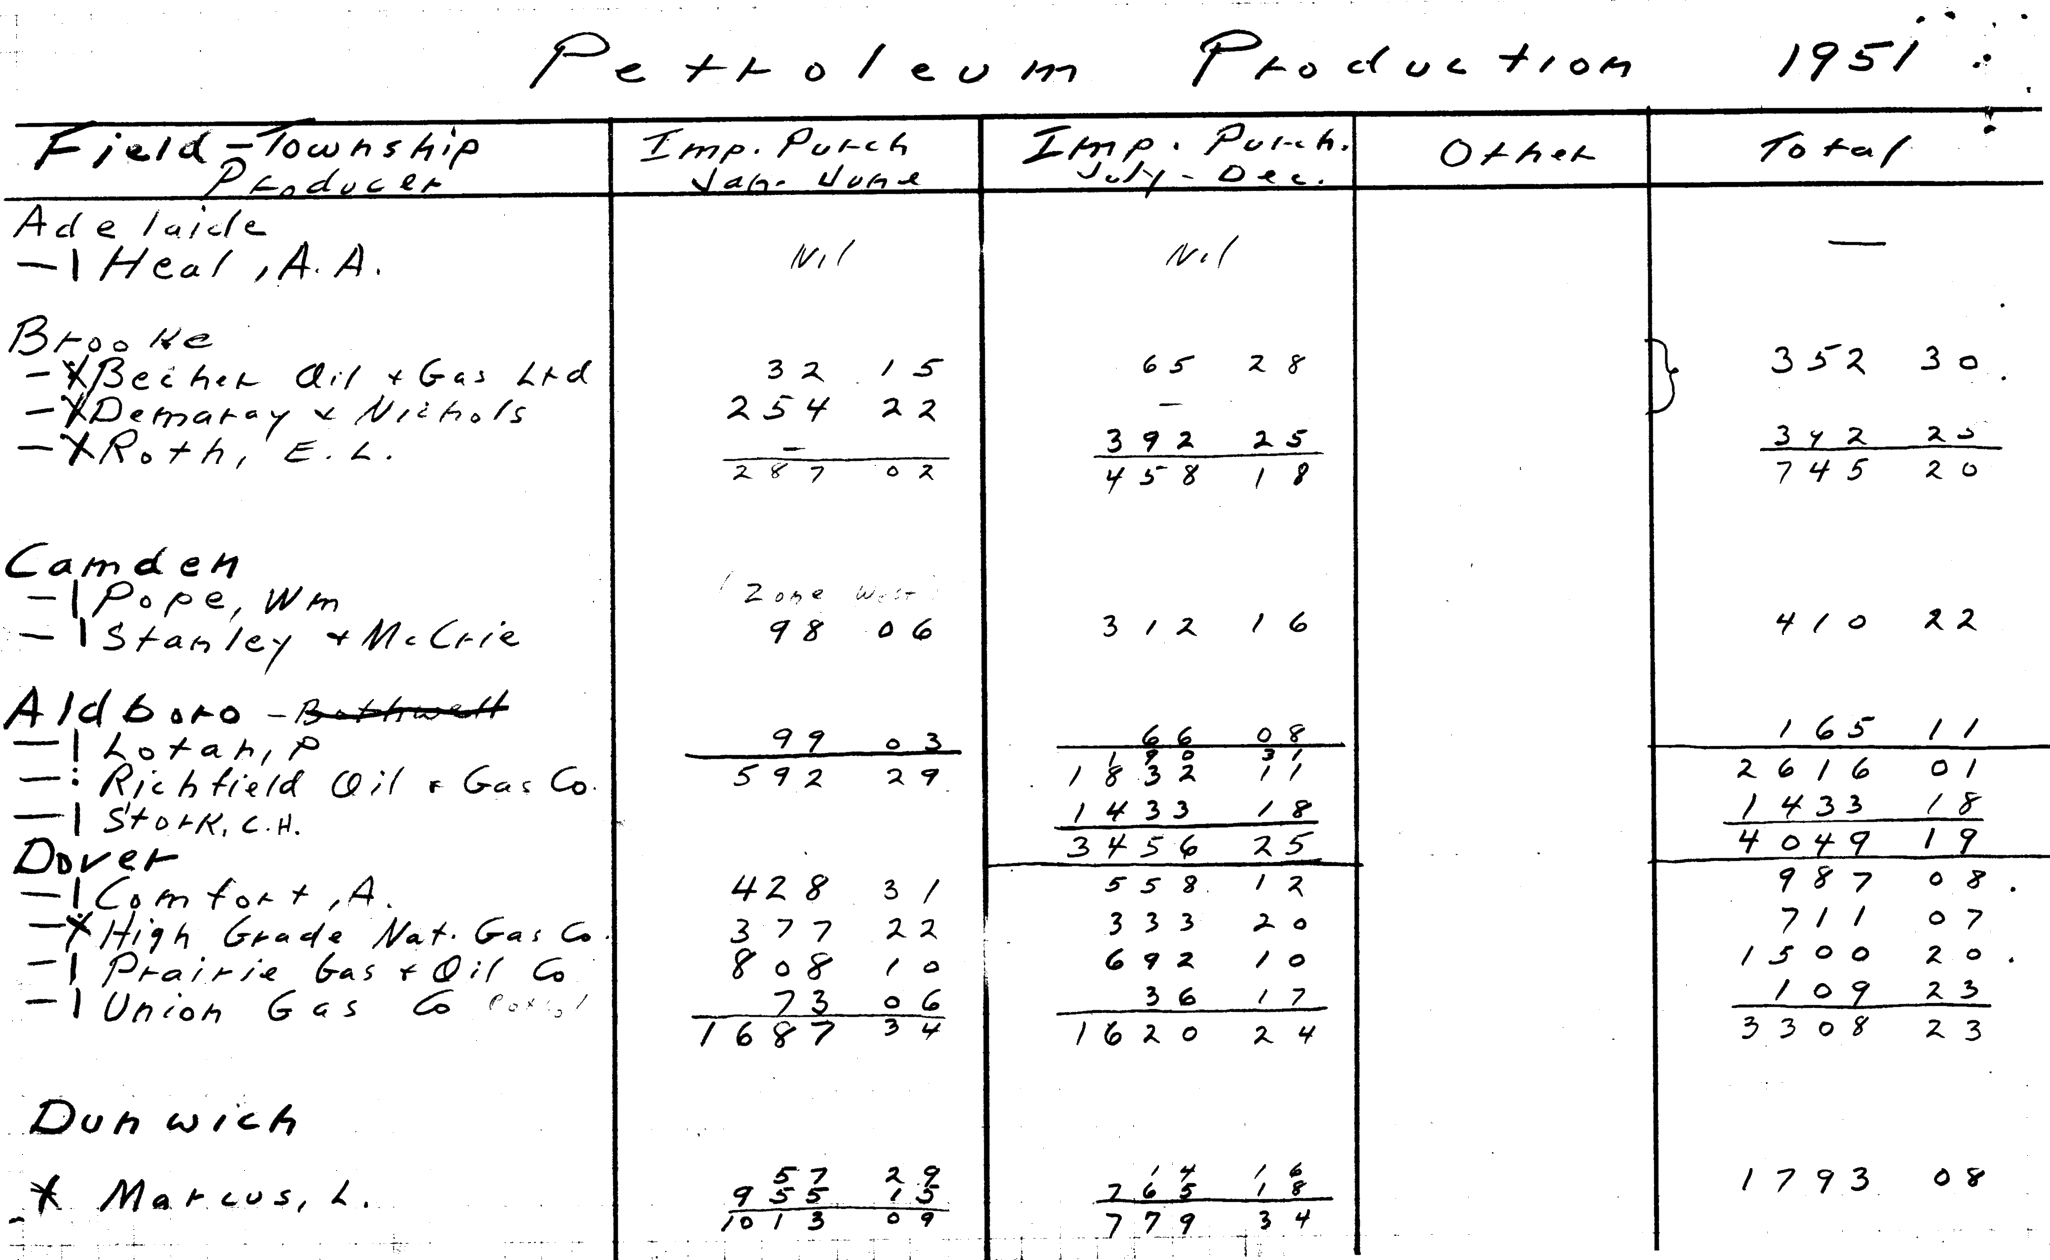 Petroleum Production 1951
Field-Township Producer Imp. Purch Jan-June Imp. Purch. July-Dec. Other Total
Adelaide
-1 Heal, A.A. Nil Nil —
Brooke
-X Becher Oil + Gas Ltd 32 15 65 28 } 352 30
-X Demaray + Nichols 254 22 —
-X Roth, E.L. — 392 25 392 25
287 02 458 18 745 20
Camden
-1 Pope, Wm Zone West
-1 Stanley + McCrie 98 06 312 16 410 22
Aldboro - Bothwell
-1 Lotan, P 99 03 66 08 165 11
190 31
-: Richfield Oil + Gas Co. 592 29 1832 11 2616 01
-1 Stork, C.H. 1433 18 1433 18
3456 25 4049 19
Dover
-1 Comfort, A. 428 31 558 12 987 08
-X High Grade Nat. Gas Co. 377 22 333 20 711 07
-1 Prairie Gas + Oil Co 808 10 692 10 1500 20
-1 Union Gas Co 73 06 36 17 109 23
1687 34 1620 24 3308 23
Dunwich
57 29 14 16
X Marcus, L. 955 15 765 18 1793 08
1013 09 779 34